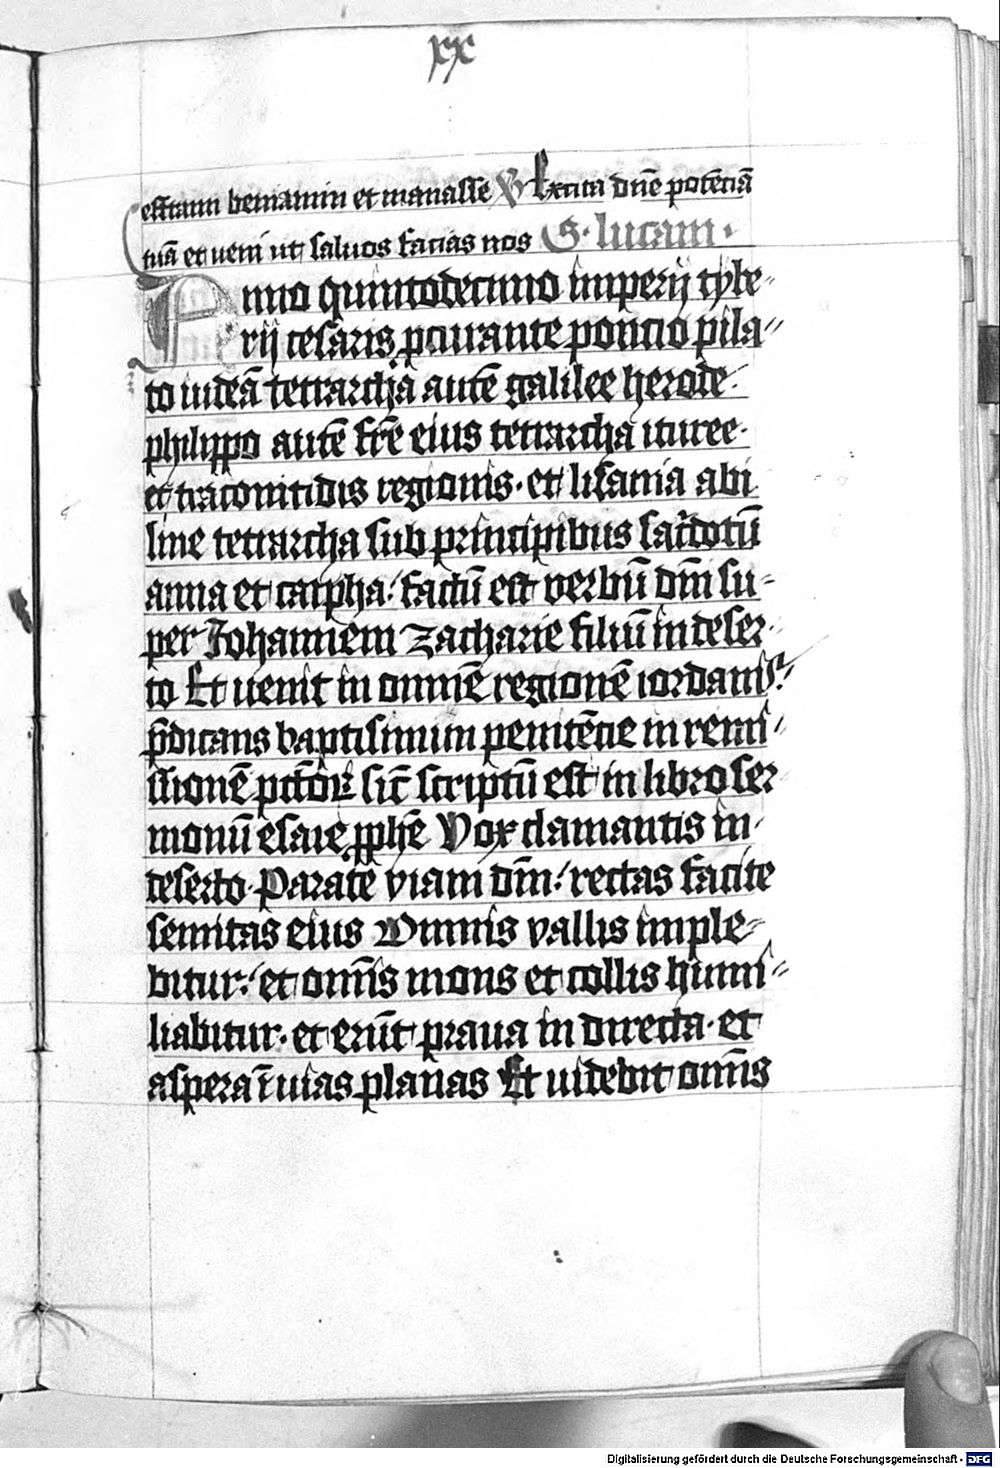 xx
effraim beniamin et manasse V Excita dne potēciā
tuā et veni ut saluos facias nos S. lucam.
Anno quintodecimo imperij tybe-
rij cesaris pcurante poncio pila-
to iudeā tetrarchā autē galilee herode.
philippo autē fr̄e eius tetrarcha ituree.
et traconitidis regionis. et lisania abi
line tetrarcha sub principibus sac̄dotū
anna et caypha. factū est verbū dn̄i su-
per Johannem Zacharie filiū in deser-
to Et uenit in omnē regionē iordanis.
p̄dicans baptismum penitēcie in remi-
ssionē pctōꝝ sic̄ scriptū est in libro ser
monū esaie pphē Vox clamantis in
deserto. Parate viam dn̄i. rectas facite
semitas eius Omnis vallis imple-
bitur. et om̄is mons et collis humi-
liabitur. et erūt praua in directa. et
aspera ī uias planas Et uidebit om̄is
Digitalisierung gefördert durch die Deutsche Forschungsgemeinschaft - DFG